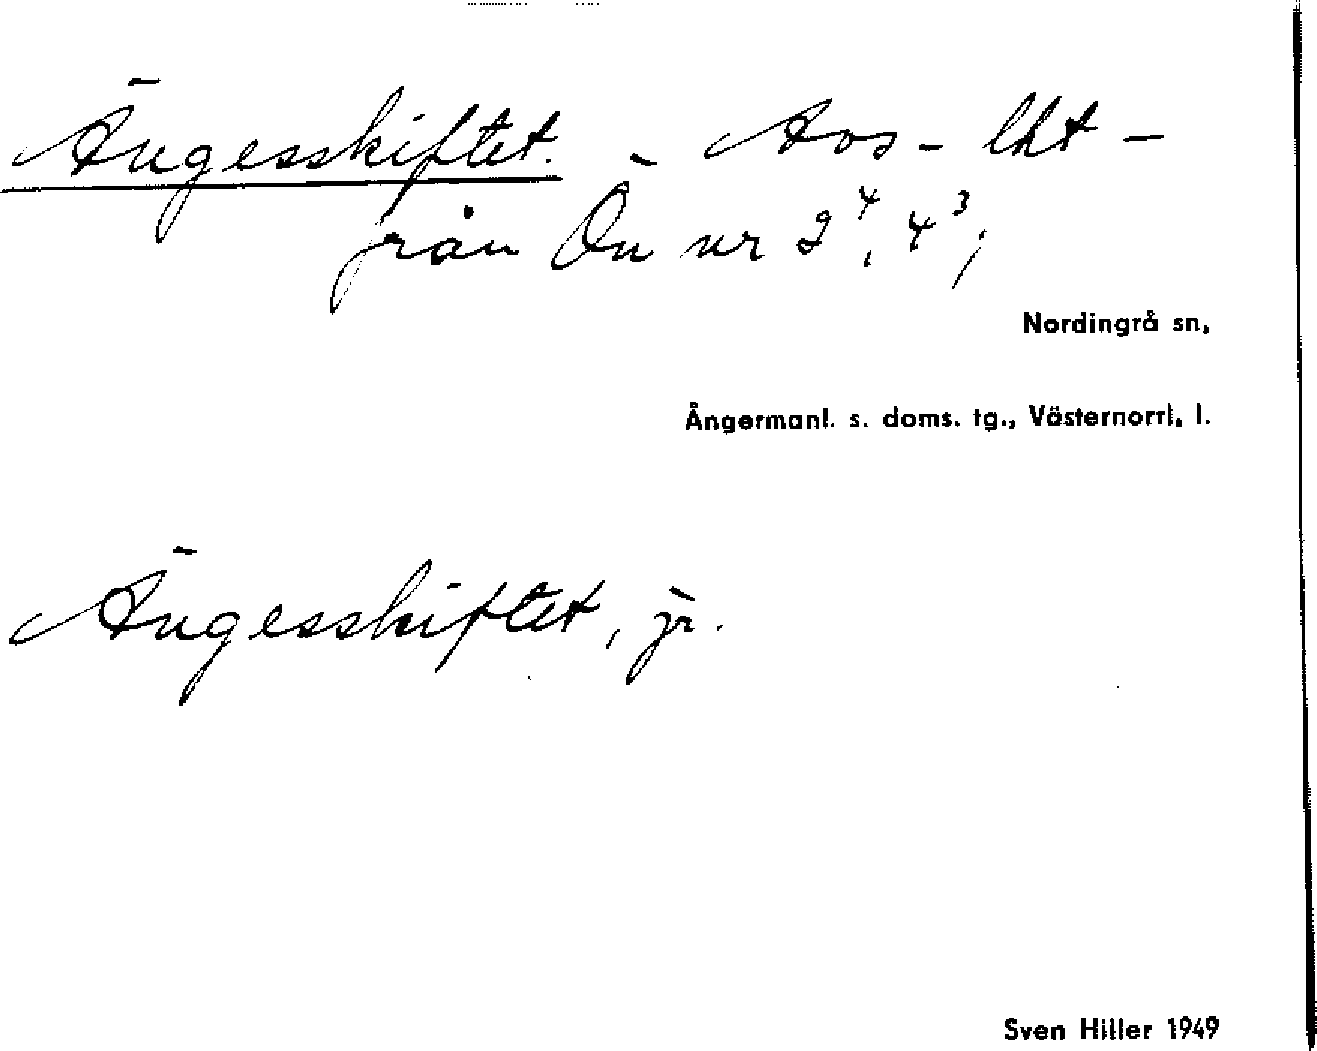 Ängesskiftet. - Avs - lht -
från Ön nr 2⁴, 4³;
Nordingrå sn,
Ångermanl. s. doms. tg., Västernorrl. l.
Ängesskiftet, jr.
Sven Hiller 1949